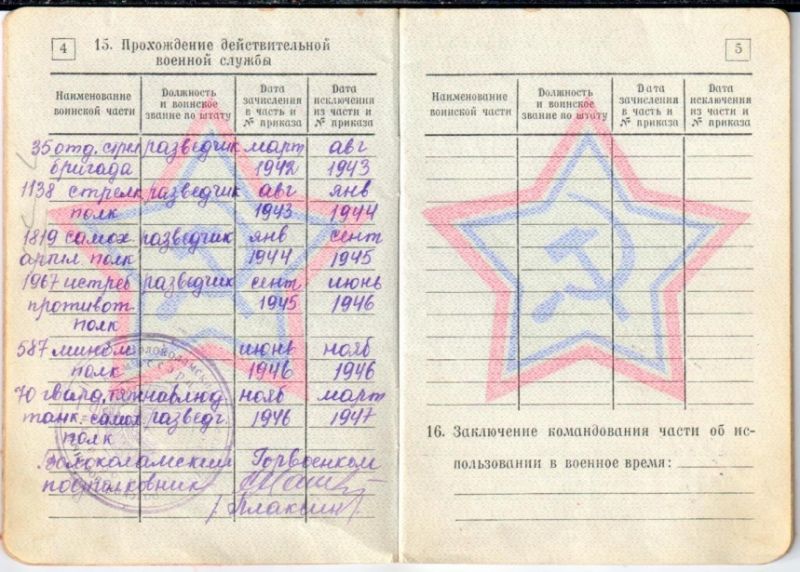 4
15. Прохождение действительной
военной службы
Наименование воинской части
Должность и воинское звание по штату
Дата зачисления в часть и № приказа
Дата исключения из части и № приказа
35 отд. стрел разведчик март авг
бригада 1942 1943
1138 стрелк разведчик авг янв
полк 1943 1944
1819 самох разведчик янв сент
артил полк 1944 1945
1967 истреб разведчик сент июнь
противот. 1945 1946
полк
587 июнь нояб
полк 1946 1946
70 гвард. нояб март
танк. самох разведч. 1946 1947
полк
Волоколамский Горвоенком
подполковник
/Плаксин/
5
Наименование воинской части
Должность и воинское звание по штату
Дата зачисления в часть и № приказа
Дата исключения из части и № приказа
16. Заключение командования части об ис-
пользовании в военное время: